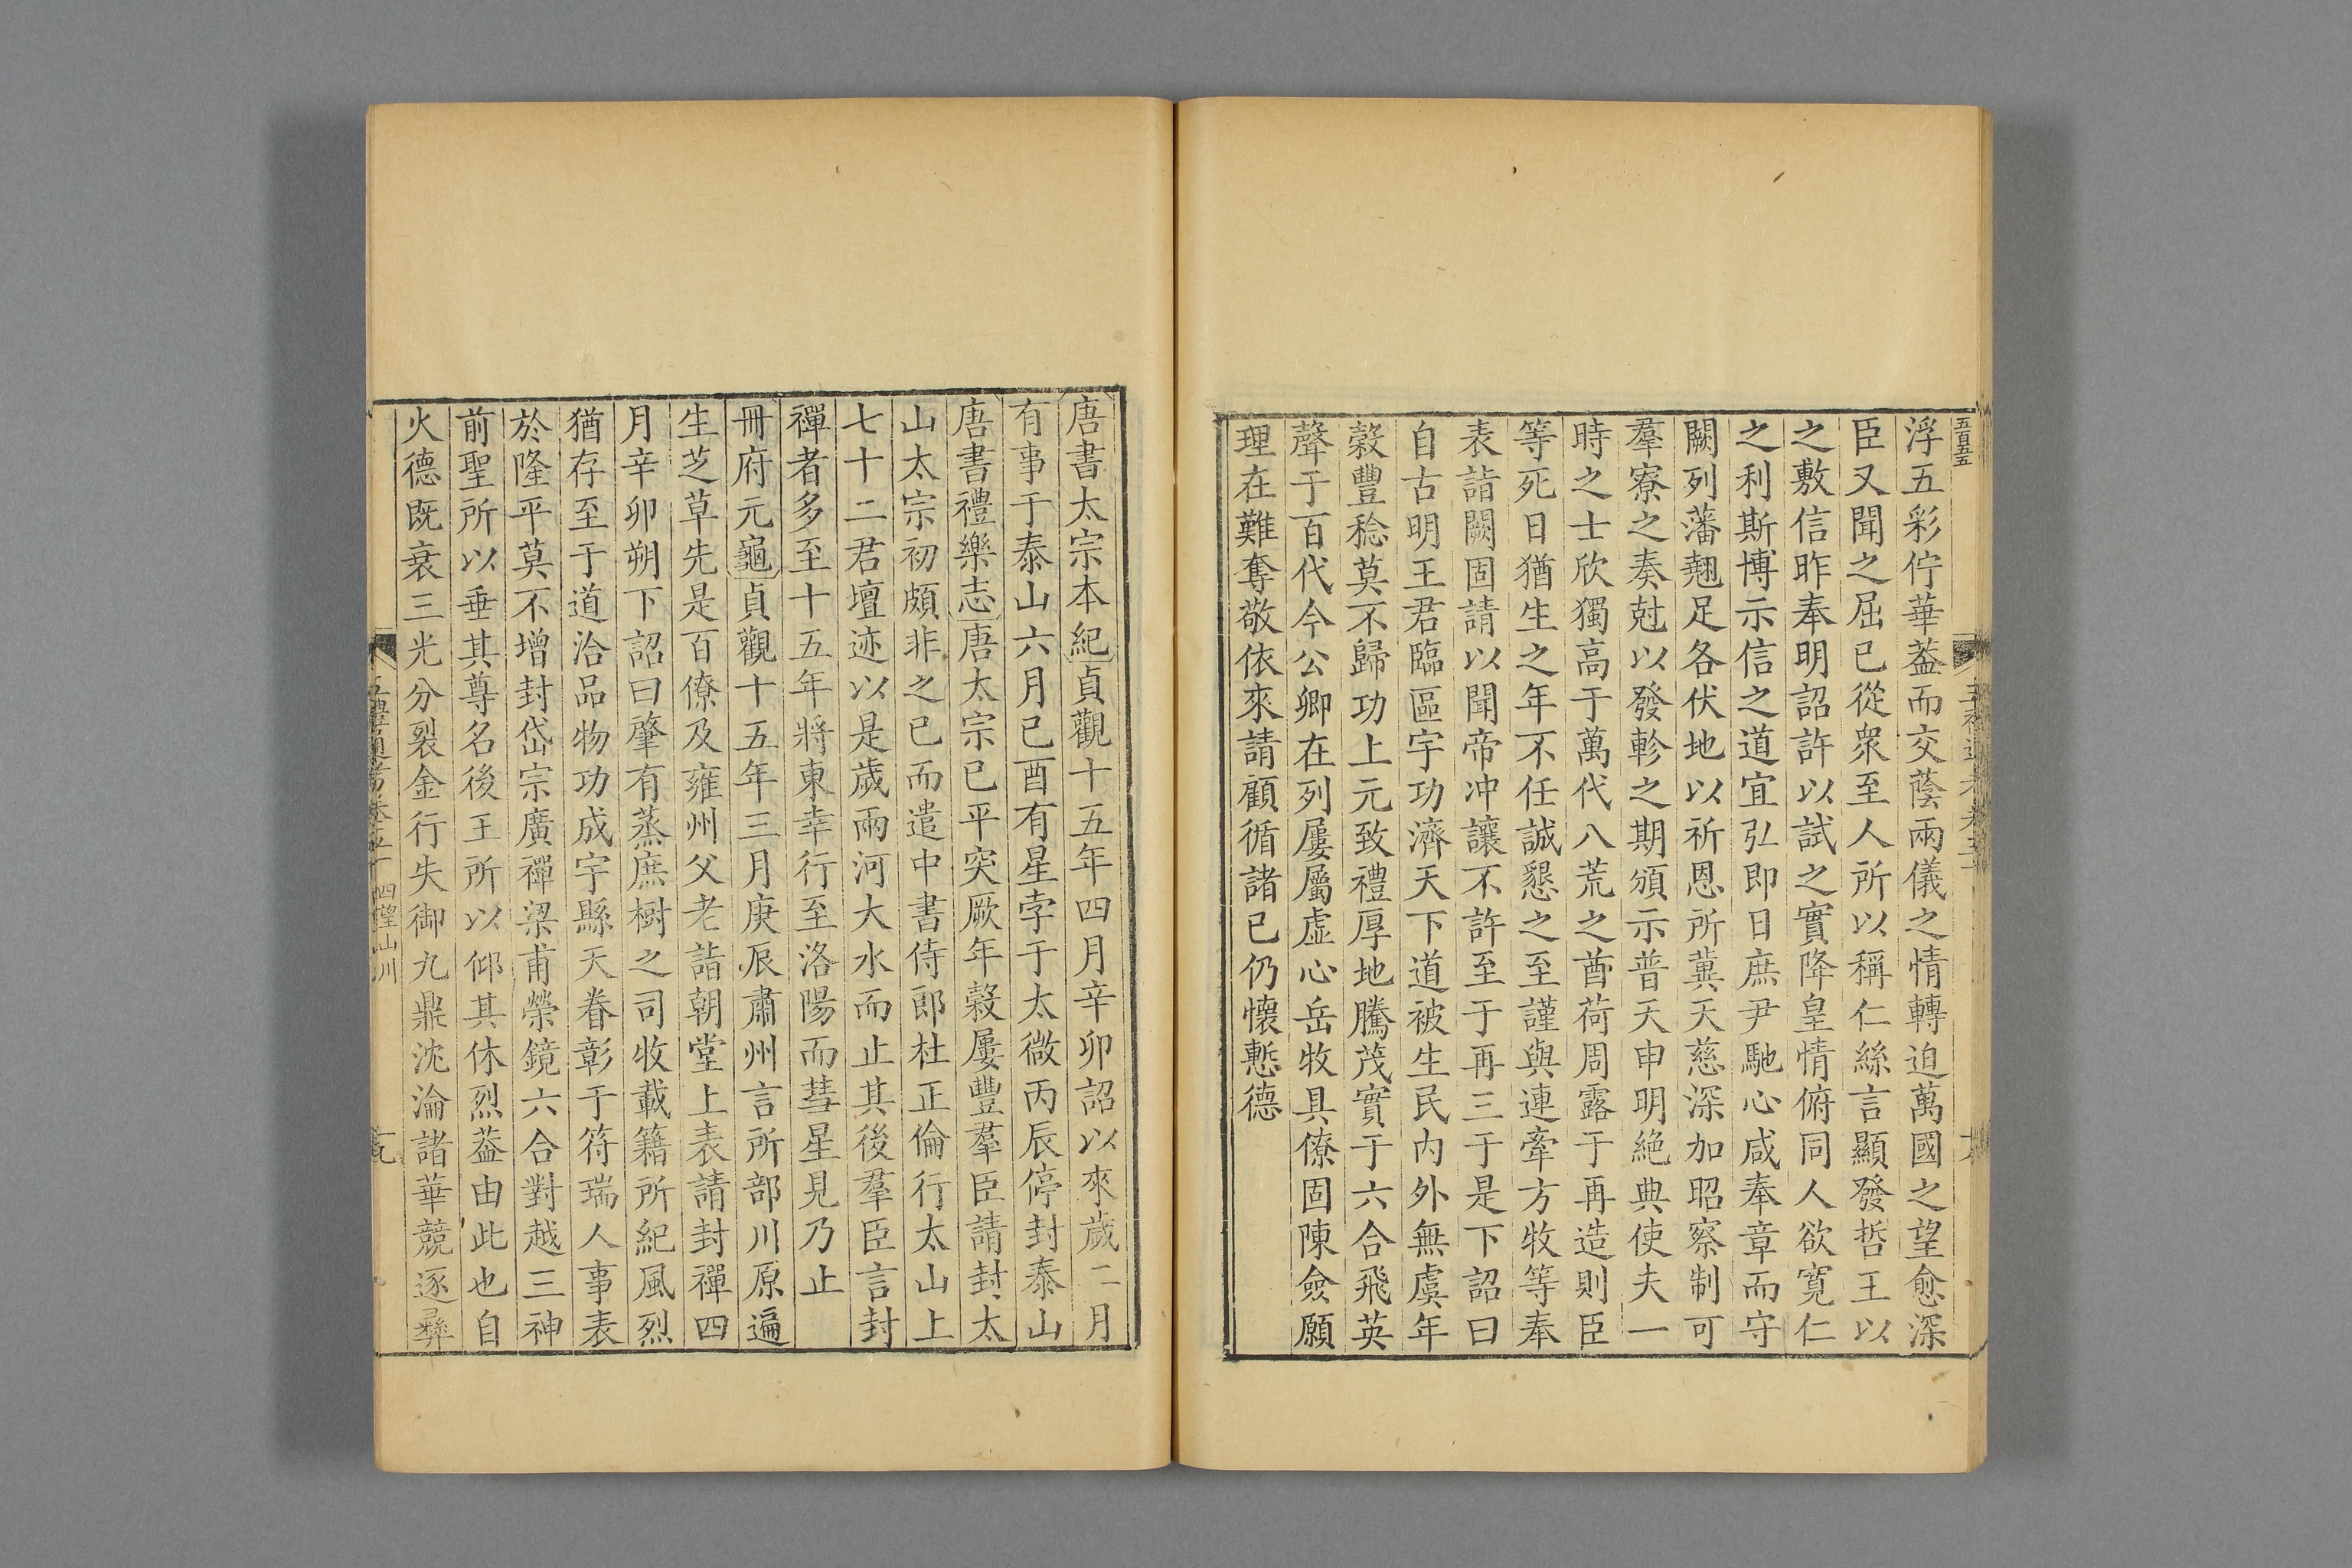 五百五五
浮五彩佇華葢而交蔭兩儀之情轉迫萬國之望愈深
臣又聞之屈已從衆至人所以稱仁絲言顯發哲王以
之敷信昨奉明詔許以試之實降皇情俯同人欲寬仁
之利斯博示信之道宜弘即日庶尹馳心咸奉章而守
闕列藩翹足各伏地以祈恩所冀天慈深加昭察制可
羣寮之奏尅以發軫之期頒示普天申明絶典使夫一
時之士欣獨高于萬代八荒之酋荷周露于再造則臣
等死日猶生之年不任誠懇之至謹與連率方牧等奉
表詣闕固請以聞帝冲讓不許至于再三于是下詔曰
自古明王君臨區宇功濟天下道被生民内外無虞年
穀豐稔莫不歸功上元致禮厚地騰茂實于六合飛英
聲于百代今公卿在列屢屬虛心岳牧具僚固陳僉願
理在難奪敬依來請顧循諸已仍懷慙德
唐書太宗本紀貞觀十五年四月辛卯詔以來歲二月
有事于泰山六月己酉有星孛于太微丙辰停封泰山
唐書禮樂志唐太宗已平突厥年穀屢豐羣臣請封太
山太宗初頗非之已而遣中書侍郎杜正倫行太山上
七十二君壇迹以是歲兩河大水而止其後羣臣言封
禪者多至十五年將東幸行至洛陽而彗星見乃止
冊府元龜貞觀十五年三月庚辰肅州言所部川原遍
生芝草先是百僚及雍州父老詣朝堂上表請封禪四
月辛卯朔下詔曰肇有蒸庶樹之司牧載籍所紀風烈
猶存至于道洽品物功成宇縣天眷彰于符瑞人事表
於隆平莫不增封岱宗廣禪梁甫榮鏡六合對越三神
前聖所以垂其尊名後王所以仰其休烈葢由此也自
火德既衰三光分裂金行失御九鼎沈淪諸華競逐彝
五禮通考卷五十 四望山川